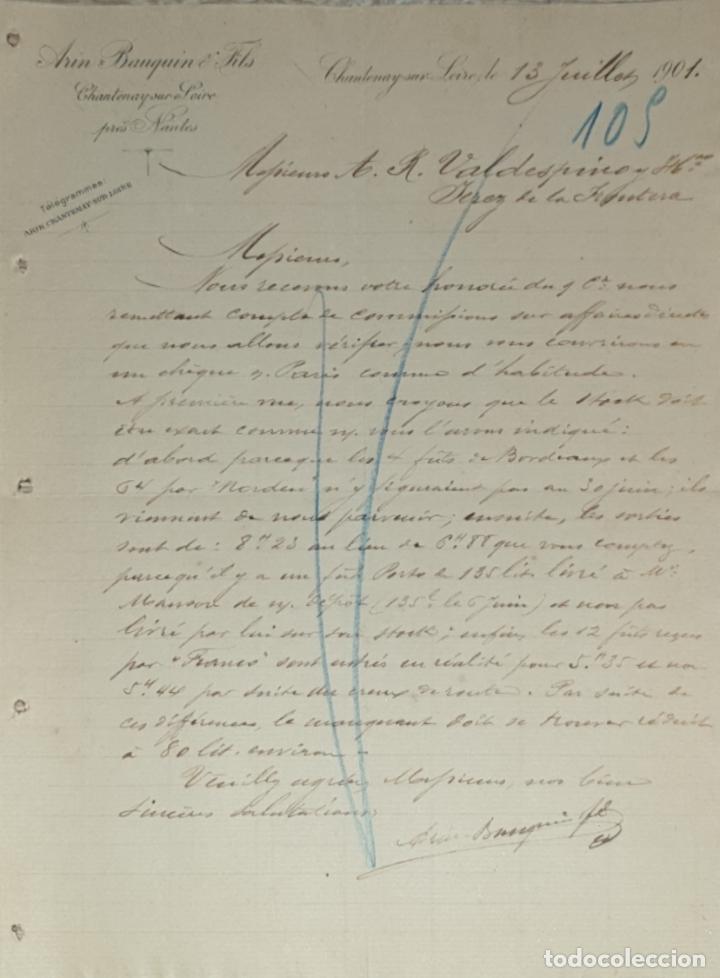 Arin Bauquin & Fils
Chantenay-sur-Loire
près Nantes
Télégrammes:
ARIN CHANTENAY-SUR-LOIRE
Chantenay-sur-Loire, le 13 Juillet 1901.
109
Messieurs A. R. Valdespino y Hno
Jerez de la Frontera
Messieurs,
Nous recevons votre honorée du 9 Ct. nous
remettant compte de commissions sur affaires directes
que nous allons vérifier; nous vous couvrirons en
un chèque s. Paris comme d'habitude.
A première vue, nous croyons que le stock doit
être exact comme n. vous l'avons indiqué:
d'abord parceque les 4 fûts de Bordeaux et les
64 par "Norden" n'y figuraient pas au 30 juin; ils
viennent de nous parvenir; ensuite, les sorties
sont de: 8.23 au lieu de 6.88 que vous comptez,
parcequ'il y a un fût Porto de 135 lit. livré à Mr.
de n. dépôt (135 l. le 6 Juin) et non pas
livré par lui sur son stock; enfin, les 12 fûts reçus
par "Franco" sont entrés en réalité pour 5.35 et non
5.44 par suite du creux de route. Par suite de
ces différences, le manquant doit se trouver réduit
à 80 lit. environ.
Veuillez agréer, Messieurs, nos bien
sincères salutations,
Arin Bauquin & fils
todocoleccion